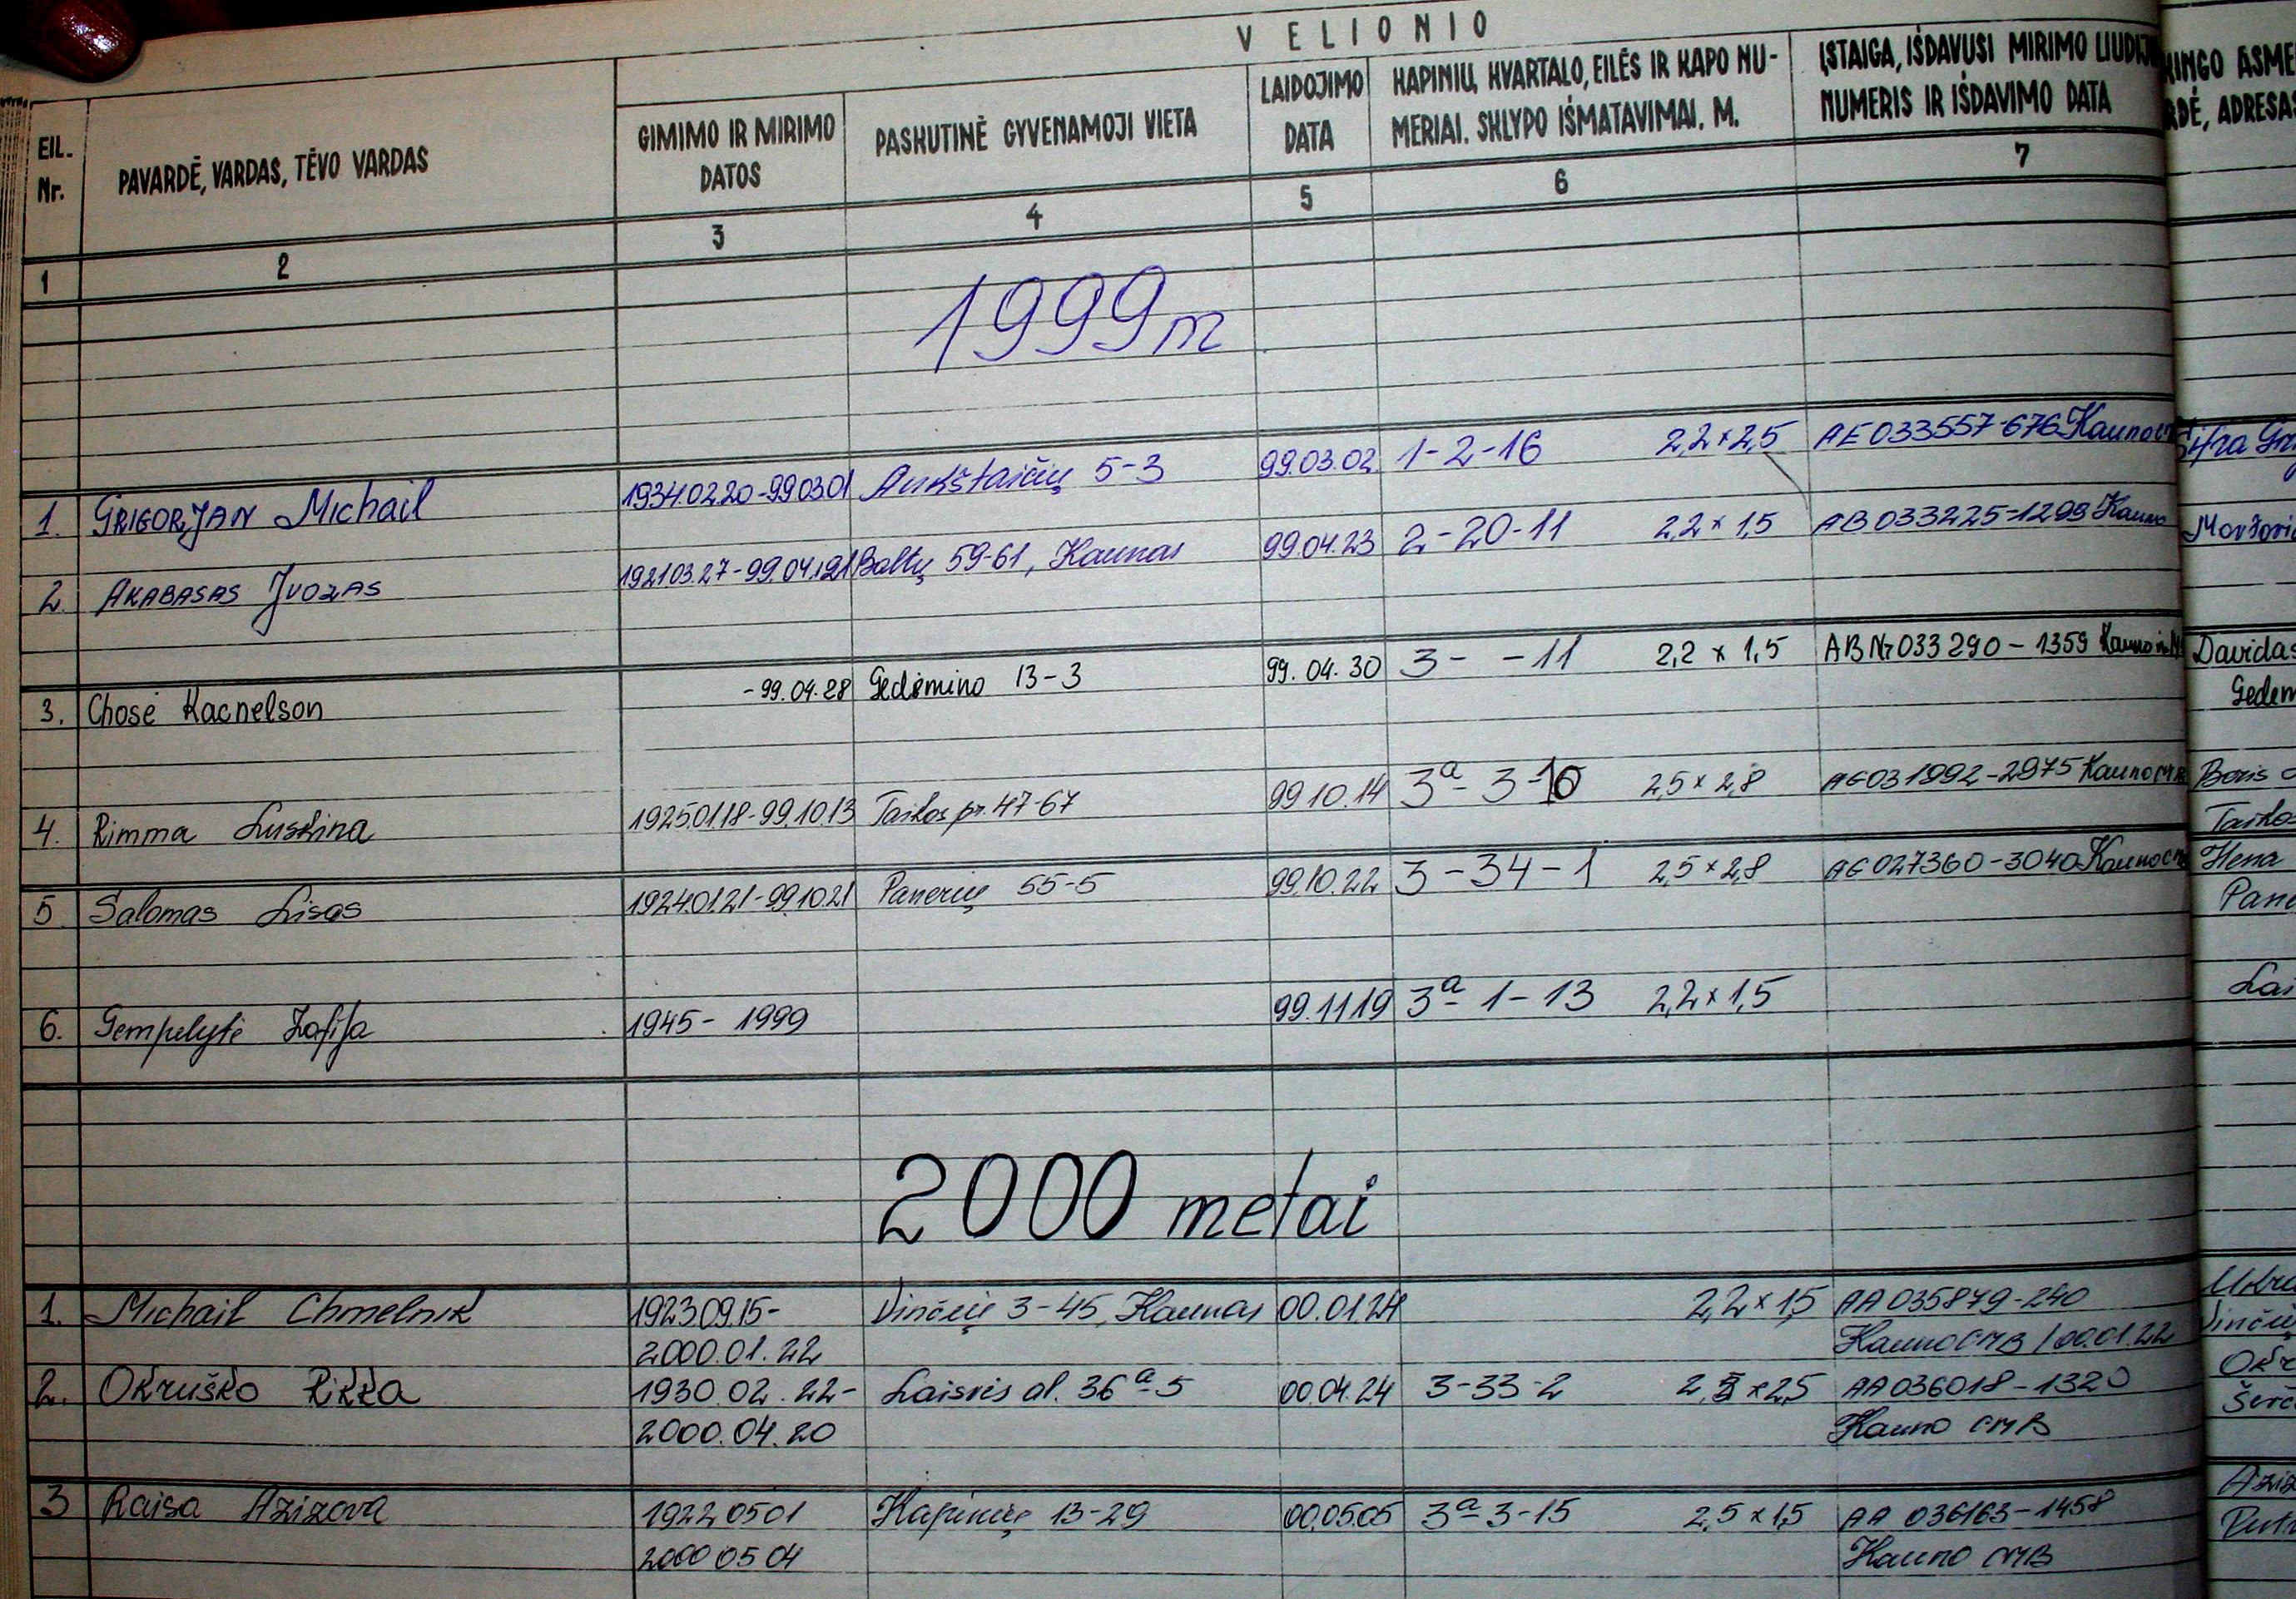 VELIONIO
EIL. Nr.
PAVARDĖ, VARDAS, TĖVO VARDAS
GIMIMO IR MIRIMO DATOS
PASKUTINĖ GYVENAMOJI VIETA
LAIDOJIMO DATA
KAPINIŲ, KVARTALO, EILĖS IR KAPO NU-
MERIAI. SKLYPO IŠMATAVIMAI. M.
ĮSTAIGA, IŠDAVUSI MIRIMO
NUMERIS IR IŠDAVIMO DATA
1 2 3 4 5 6 7
1999m
1. GRIGORJAN Michail 1934.02.20-99.03.01 Aukštaičių 5-3 99.03.02 1-2-16 2,2x2,5 AE033557-676 Kauno
2. AKABASAS JUOZAS 1921.03.27-99.04. Baltų 59-61, Kaunas 99.04.23 2-20-11 2,2x1,5 AB033225-1299 Kauno
3. Chosė Kacnelson -99.04.28 Gedėmino 13-3 99.04.30 3- -11 2,2 x 1,5 AB Nr 033290-1359 Kauno Davidas
Gedem
4. Rimma Luskina 1925.01.18-99.10.13 Taikos pr. 47-67 99.10.14 3a-3-10 2,5x2,8 031992-2975 Kauno CMB Boris
Taikos
5 Salomas Lisas 1924.01.21-99.10.21 Panerių 55-5 99.10.22 3-34-1 2,5x2,8 027360-3040 Kauno CMB Hena
Pane
6. Gempelytė Zofija 1945-1999 99.11.19 3a-1-13 2,2x1,5 Lai
2000 metai
1. Michail Chmelnik 1923.09.15- Vinčių 3-45, Kaunas 00.01.24 2,2x1,5 AA 035879-240
2000.01.22 Kauno CMB / 00.01.22
2. Okruško Rikka 1930.02.22- Laisvės al. 36a-5 00.04.24 3-33-2 x2,5 AA 036018-1320
2000.04.20 Kauno CMB
3 Raisa Azizova 1922 05 01 Kapinių 13-29 00.05.05 3a 3-15 2,5x1,5 AA 036163-1458
2000 05 04 Kauno CMB